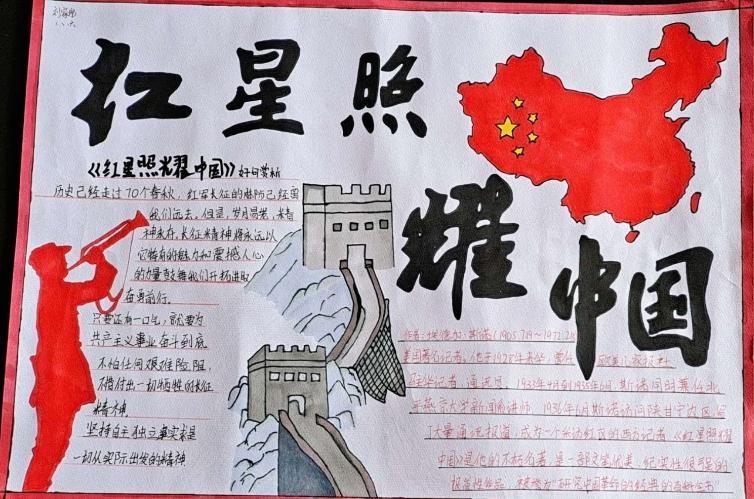 红星照
耀
中国
《红星照耀中国》好句赏析
历史已经走过70个春秋，红军长征的
我们远去。但是，岁月易老，精
神永存，长征精神将永远以
它独有的魅力和震撼人心
的力量鼓舞我们开拓进取
奋勇前行。
只要还有一口气，就要为
共产主义事业奋斗到底
不怕任何艰难险阻，
不惜付出一切牺牲的长征
精神
坚持自主独立事实求是
一切从实际出发的精神
作者：埃德加·斯诺（1905.7.19~1972.2.
美国著名记者，他于1928年来华，曾任 欧美几家报社
驻华记者、通讯员，1933年4月到1935年6月，斯诺同时兼任北
平燕京大学新闻系讲师，1936年6月斯诺访问陕甘宁边区，写
了大量通讯报道，成为第一个采访红区的西方记者，《红星照耀
中国》是他的不朽名著，是一部文笔优美，纪实性很强的
报道性作品，被誉为“研究中国革命的经典的百科全书”